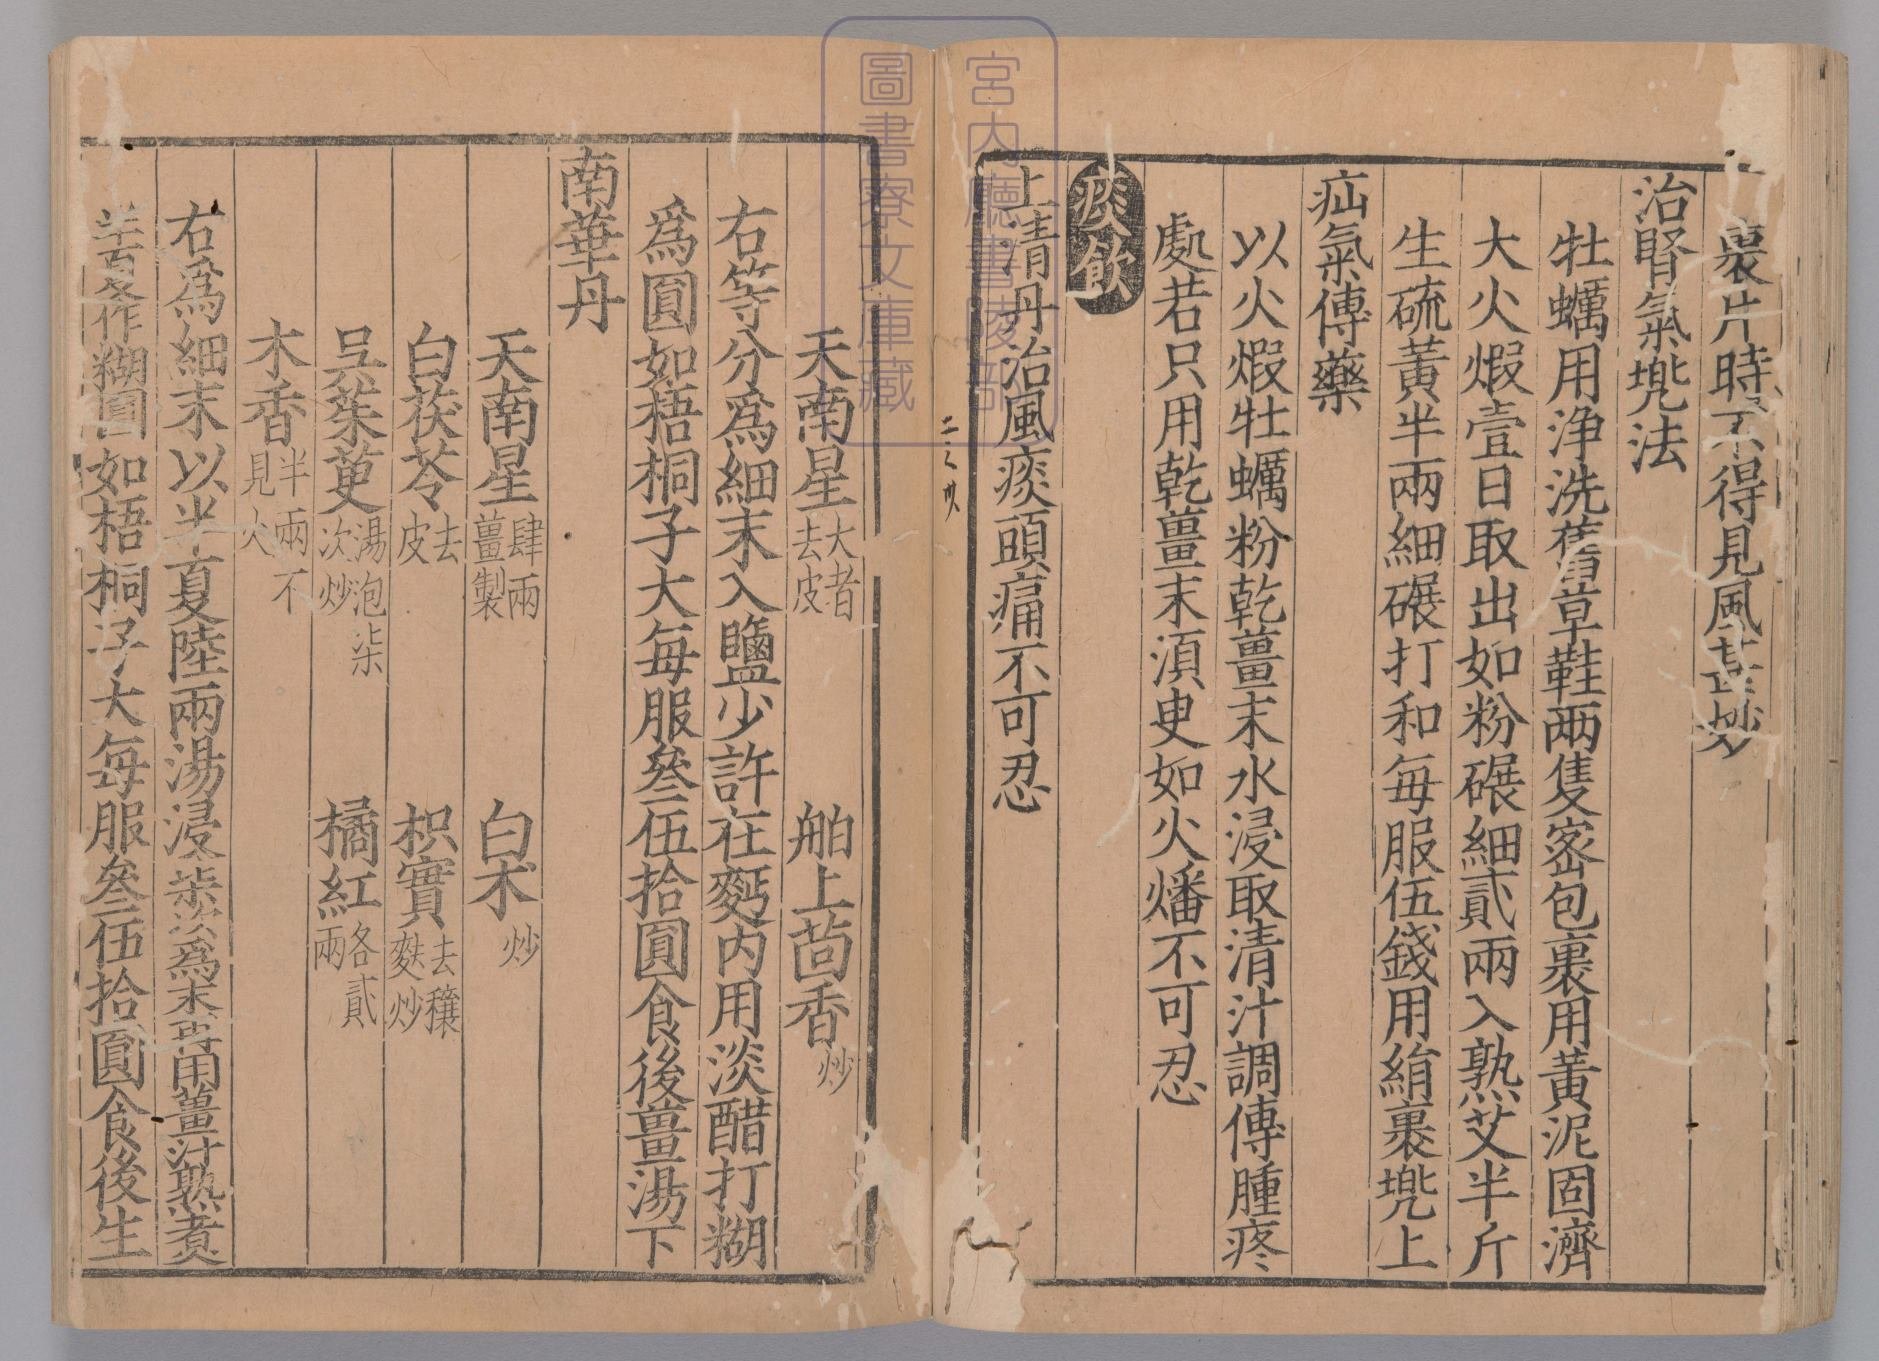 裹片時不得見風甚妙
治腎氣兠法
牡蠣用淨洗舊草鞋两隻密包裹用黃泥固濟
大火煆壹日取出如粉碾細貳兩入熟艾半斤
生硫黃半兩細碾打和每服伍錢用絹裹兠上
疝氣傅藥
以火煆牡蠣粉乾薑末水浸取清汁調傅腫疼
處若只用乾薑末湏臾如火燔不可忍
痰飲
上清丹治風痰頭痛不可忍
天南星大者去皮 舶上茴香炒
右等分爲細末入鹽少許在麪内用淡醋打糊
爲圓如梧桐子大每服叁伍拾圓食後薑湯下
南華丹
天南星肆兩薑製 白朮炒
白茯苓去皮 枳實去穰麩炒
吳茱萸湯泡柒次炒 橘紅各貳兩
木香半兩不見火
右爲細末以半夏陸兩湯浸柒次爲末再用薑汁熟煮
作糊圓如梧桐子大每服叁伍拾圓食後生
二之廿八
宮内廳書陵部
圖書寮文庫藏